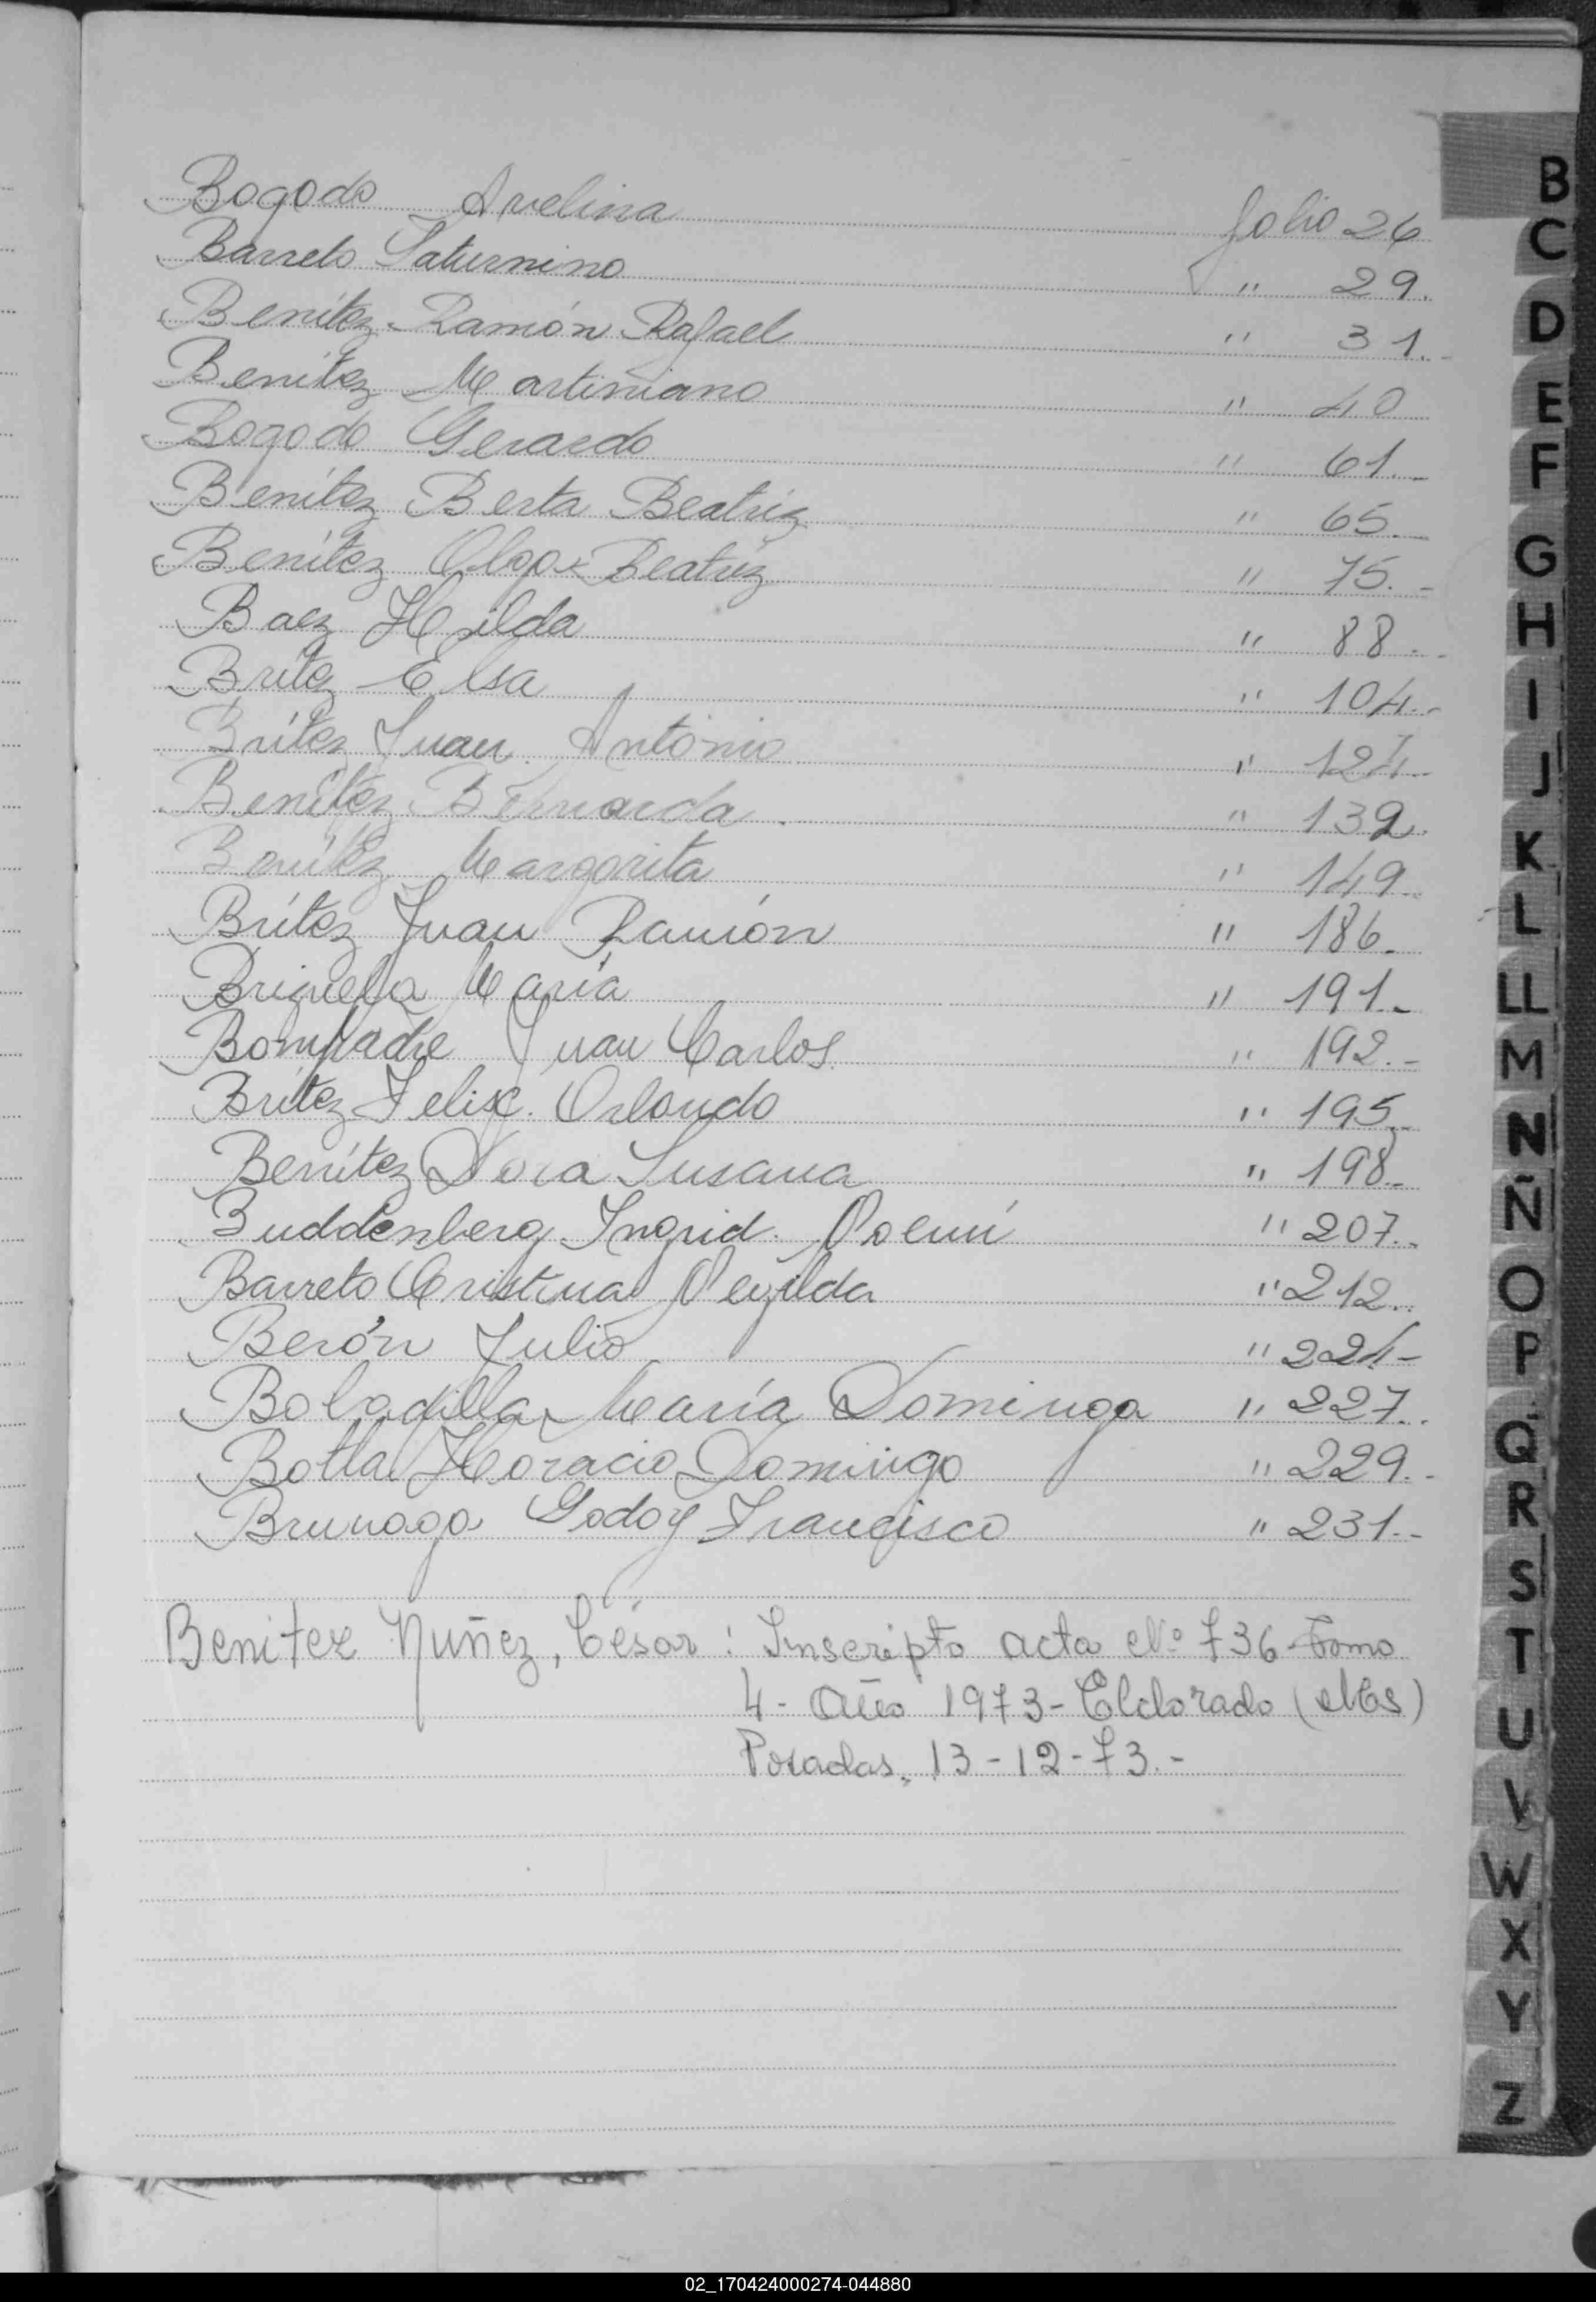 Bogado Avelina folio 26
Barreto Saturnino " 29.
Benítez Ramón Rafael " 31.-
Benítez Martiniano " 40
Bogado Gerardo " 61.-
Benítez Berta Beatriz " 65.-
Benítez Olga Beatriz " 75.-
Baez Hilda " 88.-
Britez Elsa " 104.-
Brítez Juan Antonio " 124-
Benítez Bernarda " 139.
Benítez Margarita " 149.
Brítez Juan Ramón " 186.-
Briñuela María " 191.-
Bompadre Juan Carlos " 192.-
Brítez Felix Orlando " 195.-
Benítez Dora Susana " 198.-
Buddenberg Ingrid Noemí " 207.-
Barreto Cristina Nejilda " 212.-
Berón Julio " 224-
Bobadilla María Dominga " 227.-
Botta Horacio Domingo " 229.-
Brunaga Godoy Francisco " 231.-
Benitez Nuñez, César : Inscripto acta Nº 736-Tomo
4- Año 1973- Eldorado (Mes)
Posadas, 13-12-73.-
B
C
D
E
F
G
H
I
J
K
L
LL
M
N
Ñ
O
P
Q
R
S
T
U
V
W
X
Y
Z
02_170424000274-044880